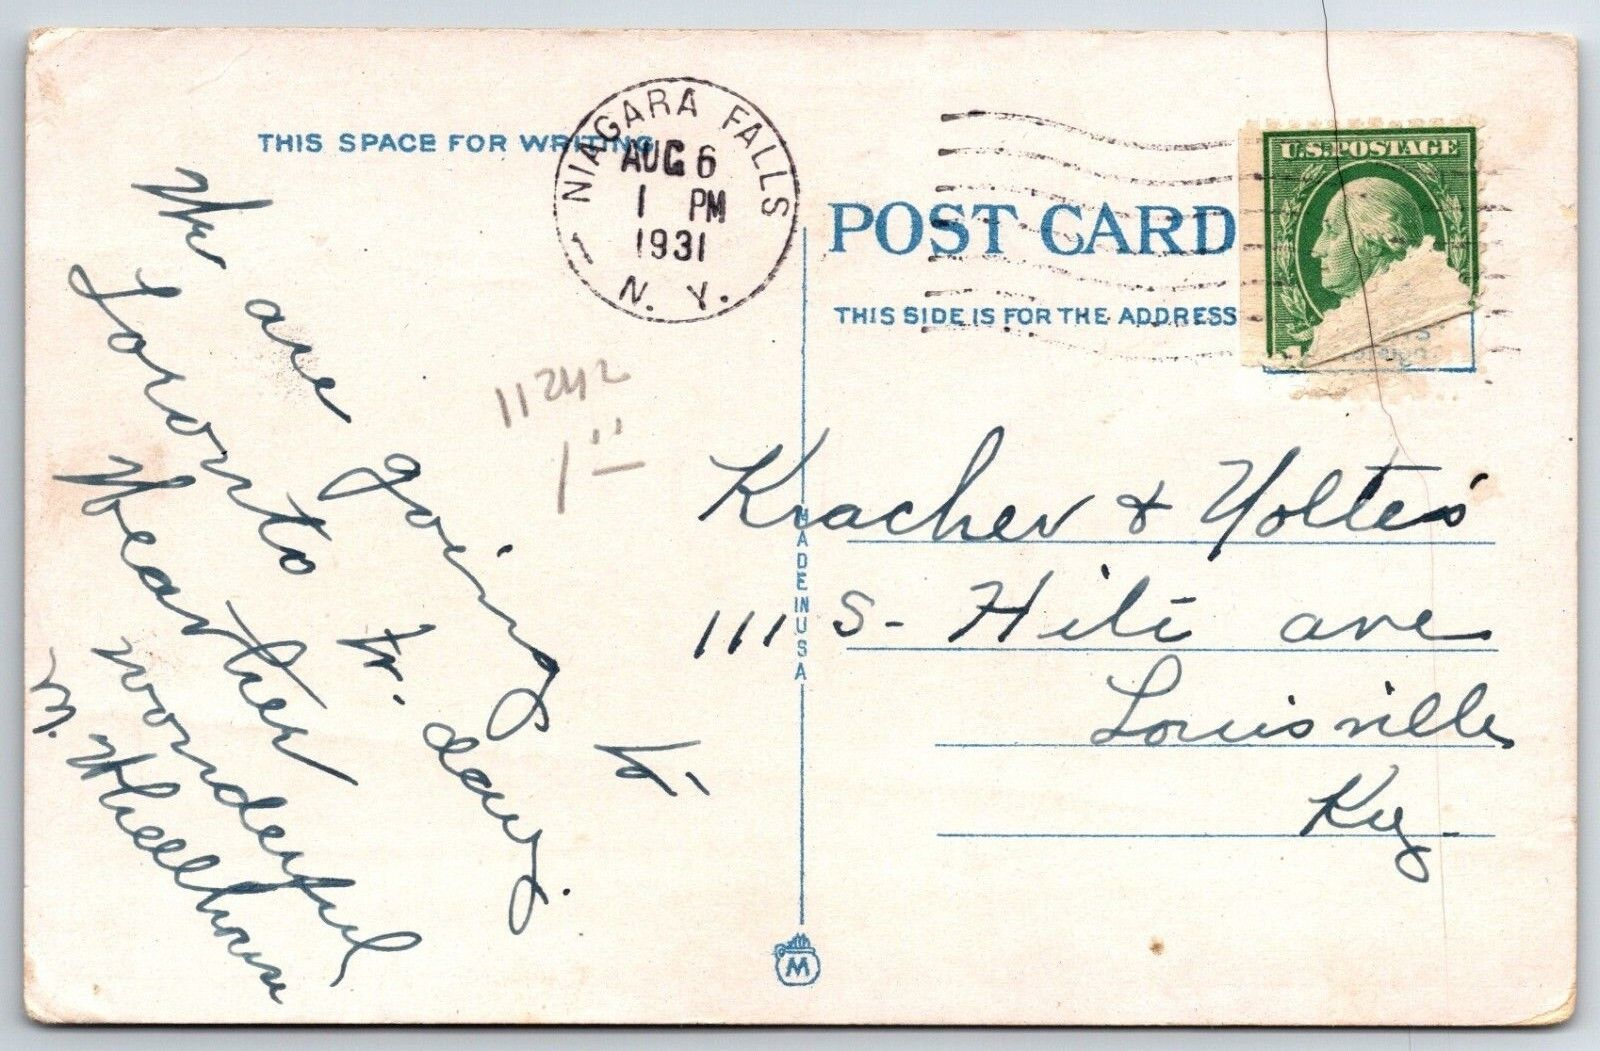 THIS SPACE FOR WRITING
NIAGARA FALLS
AUG 6
1 PM
1931
N. Y.
We are going to
Toronto to day.
Weather
wonderful
M. Wheelhouse
11242
1.00
MADE IN USA
M
POST CARD
THIS SIDE IS FOR THE ADDRESS
U.S. POSTAGE
Kracher & Yolte's
111 S- Hite ave
Louisville
Ky-